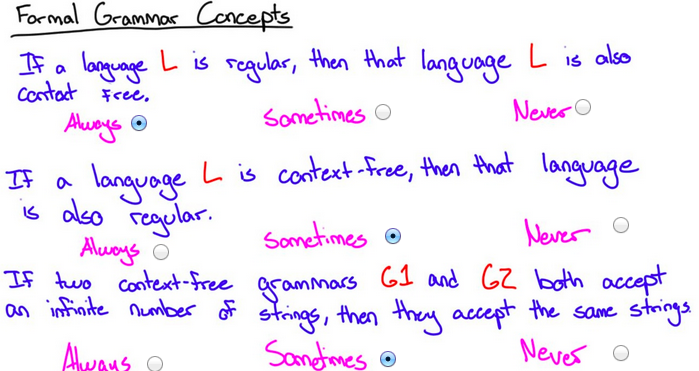 Formal Grammar Concepts
If a language L is regular, then that language L is also
context free.
Always Sometimes Never
If a language L is context-free, then that language
is also regular.
Always Sometimes Never
If two context-free grammars G1 and G2 both accept
an infinite number of strings, then they accept the same strings.
Always Sometimes Never